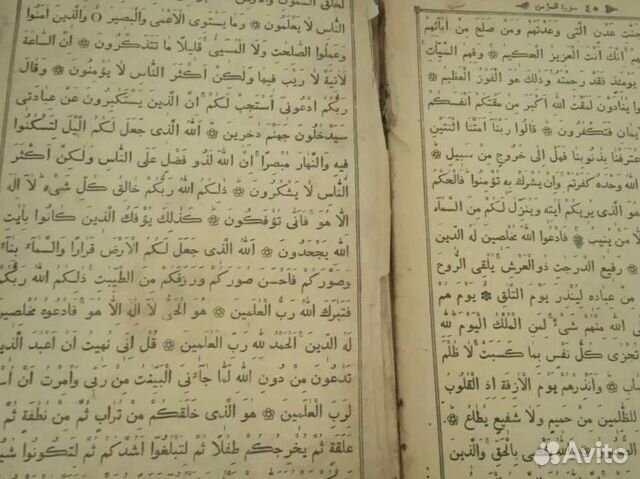 ٤٠ سورة المؤمن
جنت عدن التى وعدتهم ومن صلح من ابائهم
انك انت العزيز الحكيم وقهم السيات
يومئذ فقد رحمته وذلك هو الفوز العظيم
ينادون لمقت الله اكبر من مقتكم انفسكم
فتكفرون قالوا ربنا امتنا اثنتين
بذنوبنا فهل الى خروج من سبيل
الله وحده كفرتم وان يشرك به تؤمنوا فالحكم
هو الذى يريكم ايته وينزل لكم من السماء
من ينيب فادعوا الله مخلصين له الدين
رفيع الدرجت ذو العرش يلقى الروح
من عباده لينذر يوم التلاق يوم هم
الله منهم شئ لمن الملك اليوم لله
تجزى كل نفس بما كسبت لا ظلم
وانذرهم يوم الازفة اذ القلوب
للظلمين من حميم ولا شفيع يطاع
بالحق والذين
الناس لا يعلمون وما يستوى الاعمى والبصير والذين امنوا
وعملوا الصلحت ولا المسئ قليلا ما تتذكرون ان الساعة
لاتية لا ريب فيها ولكن اكثر الناس لا يؤمنون وقال
ربكم ادعونى استجب لكم ان الذين يستكبرون عن عبادتى
سيدخلون جهنم دخرين الله الذى جعل لكم اليل لتسكنوا
فيه والنهار مبصرا ان الله لذو فضل على الناس ولكن اكثر
الناس لا يشكرون ذلكم الله ربكم خالق كل شئ لا اله
الا هو فانى تؤفكون كذلك يؤفك الذين كانوا بايت
الله يجحدون الله الذى جعل لكم الارض قرارا والسماء بناء
وصوركم فاحسن صوركم ورزقكم من الطيبت ذلكم الله ربكم
فتبارك الله رب العلمين هو الحى لا اله الا هو فادعوه مخلصين
له الدين الحمد لله رب العلمين قل انى نهيت ان اعبد الذين
تدعون من دون الله لما جاءنى البينت من ربى وامرت ان
لرب العلمين هو الذى خلقكم من تراب ثم من نطفة ثم
علقة ثم يخرجكم طفلا ثم لتبلغوا اشدكم ثم لتكونوا
Avito